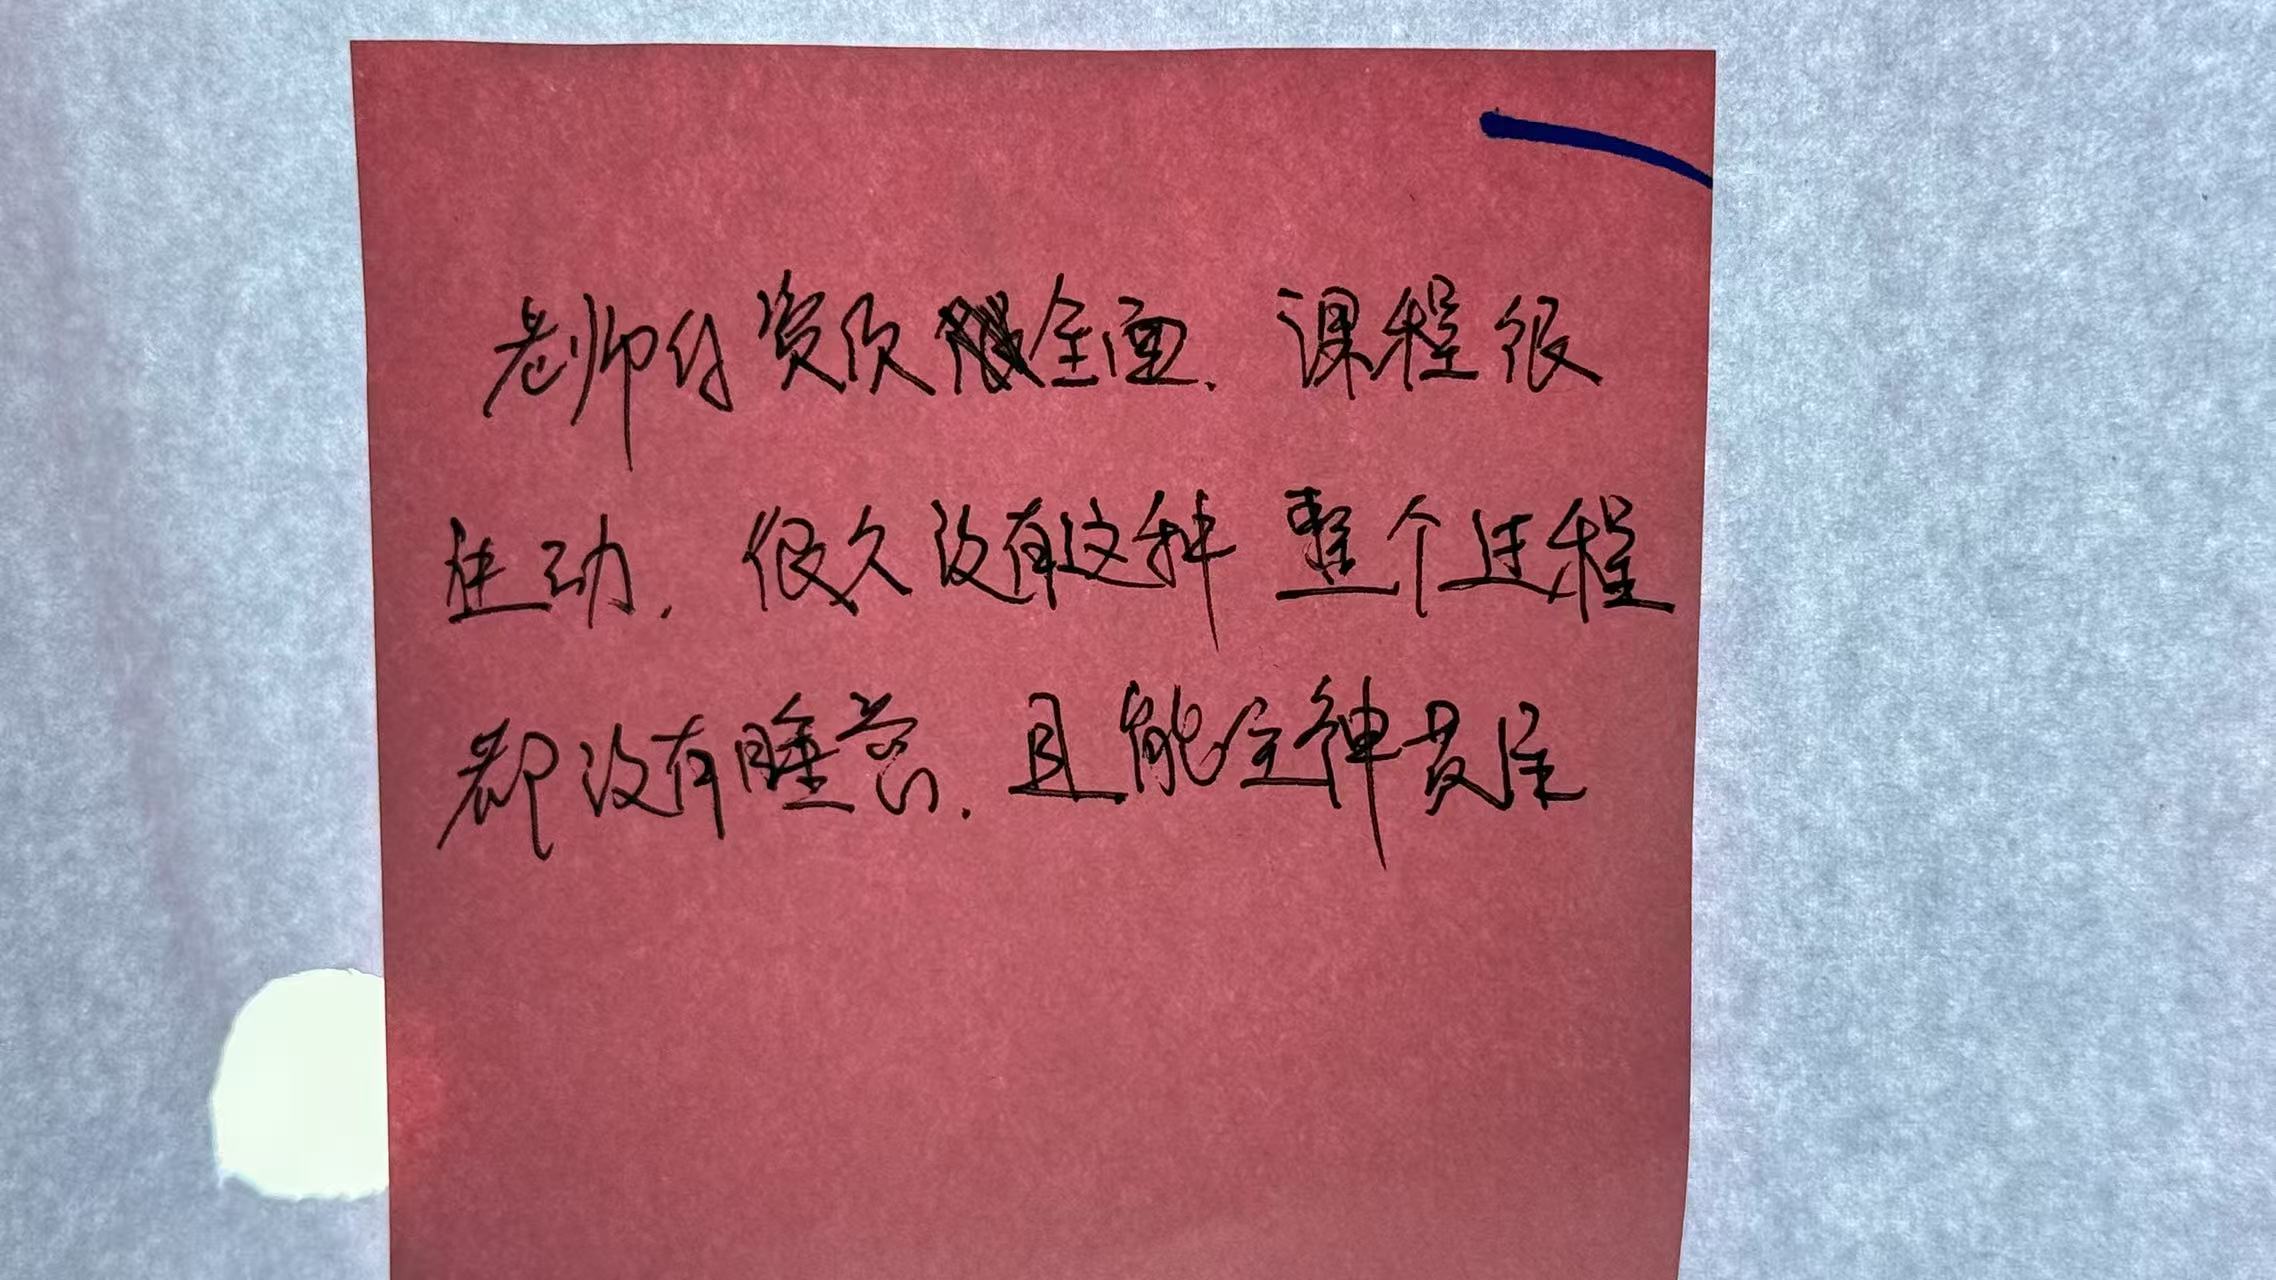 老师的资质全面. 课程很
生动. 很久没有这种整个过程
都没有睡觉. 且能全神贯注